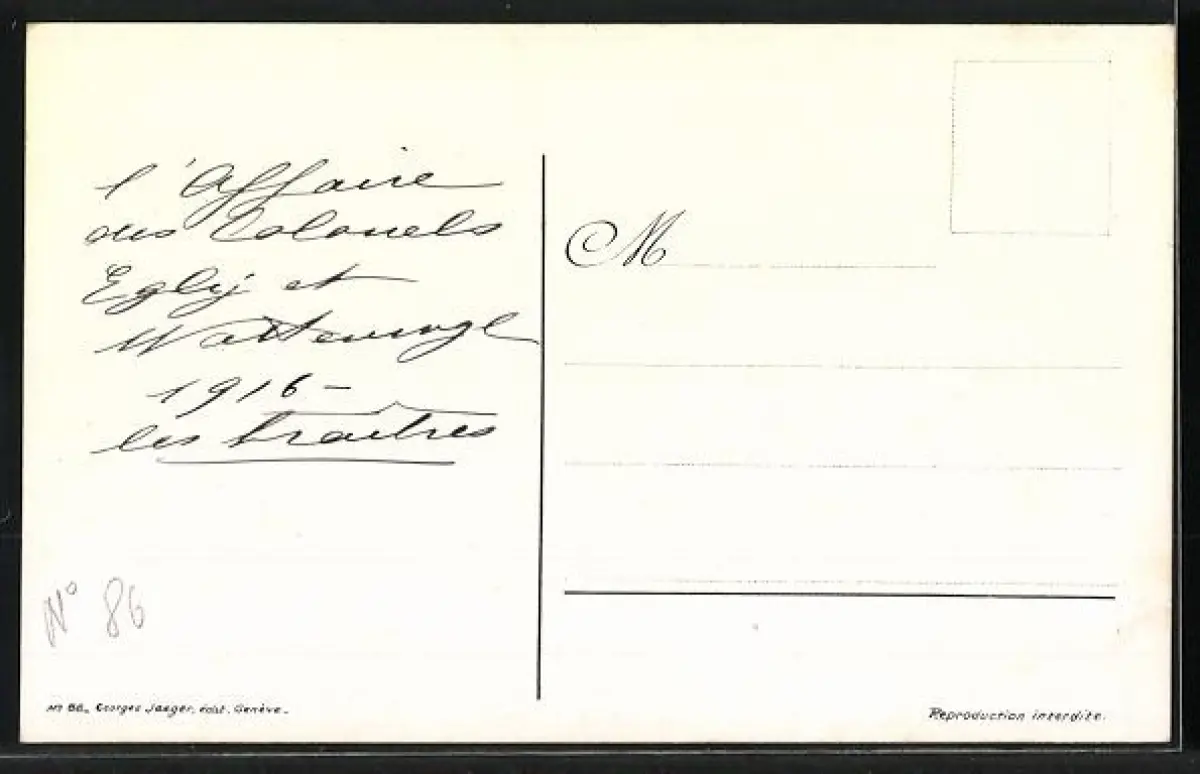 l'Affaire
des Colonels
Egly et
Wattenwyl
1916 -
les traîtres
M
N° 86
Nº 86. Georges Jaeger, édit. Genève.
Reproduction interdite.